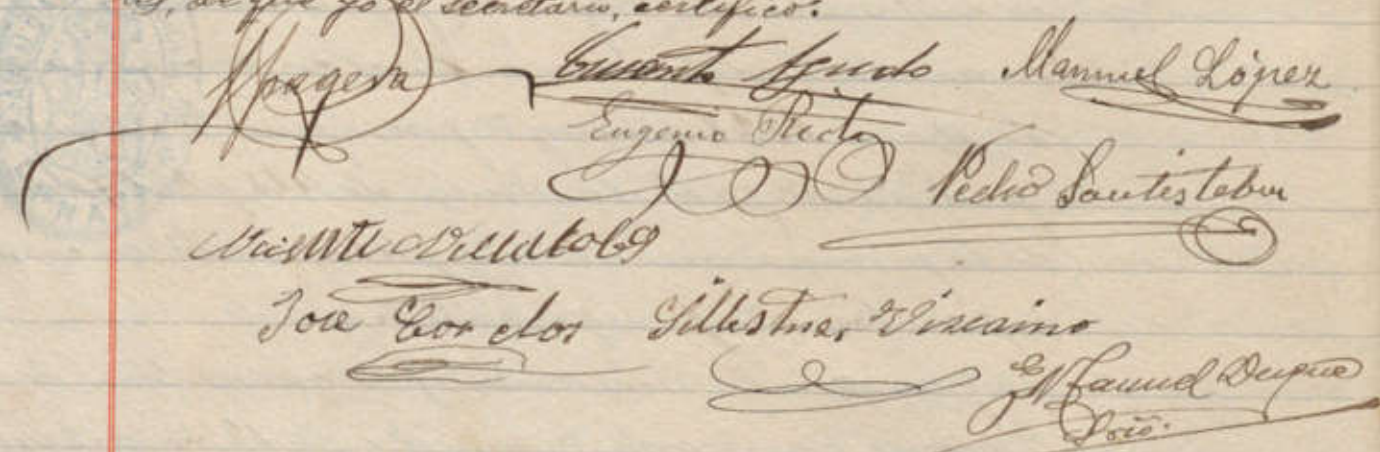 de que yo el secretario, certifico.
Mragera Vicente Agudo Manuel López
Eugenio Recta
Pedro Santisteban
Vicente Villalobos
José Cordos Sillestre, Viscaino
Manuel Duque
Srio.